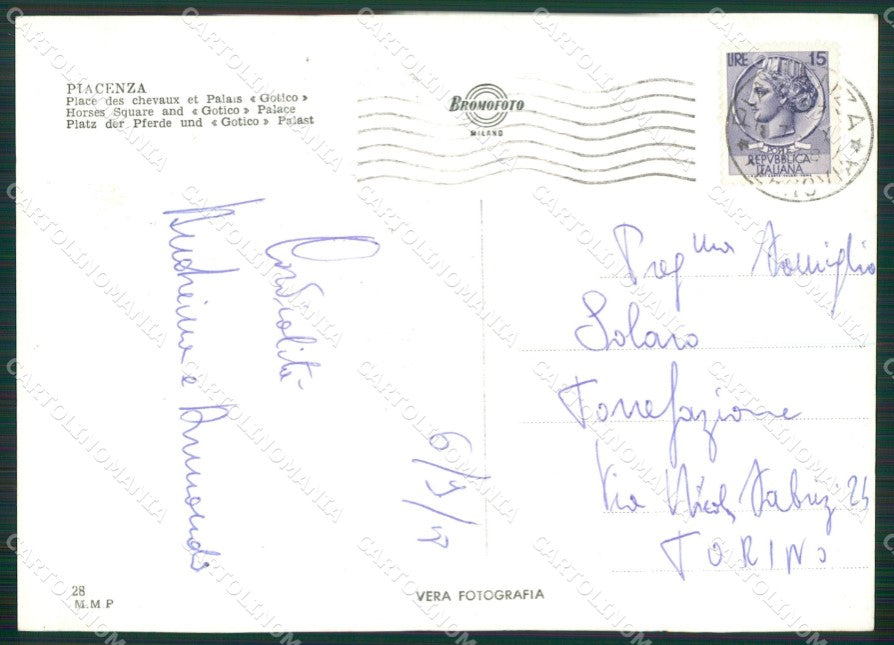 PIACENZA
Place des chevaux et Palais « Gotico »
Horses Square and « Gotico » Palace
Platz der Pferde und « Gotico » Palast
BROMOFOTO
MILANO
LIRE 15
POSTE
REPVBBLICA
ITALIANA
Cordialità
e Armando
Preg ma Famiglia
Solaro
Torrefazione
Via Nicola Fabrizi 24
TORINO
28
M.M P
VERA FOTOGRAFIA
CARTOLINOMANIA